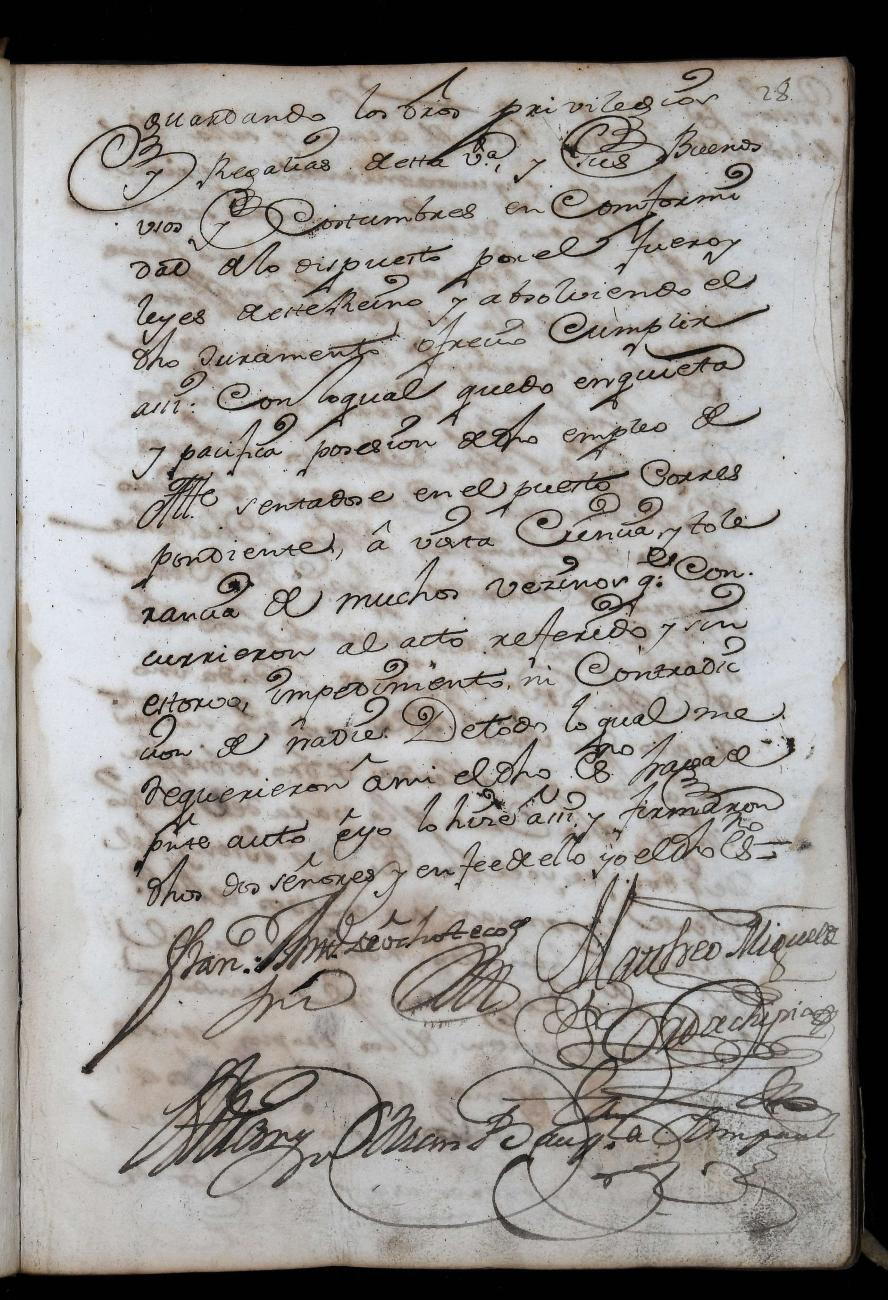 28
guardando los dhos privilegios
y Regalias desta Vª, y sus Buenos
usos y Costumbres en Comformi
dad de lo dispuesto por el fuero y
leyes deste Reino y absolviendo el
dho Juramento ofrecio Cumplir
assi: Con lo qual quedo en quieta
y pacifica posesion de dho empleo de
Alle sentadose en el puesto Corres
pondiente, â vista Ciencia, y tole
rancia de muchos vezinos q.e Con-
currieron al acto referido y sin
estorvo, impedimento, ni Contradic
cion de nadie. De todo lo qual me
requirieron â mi el dho Esno haga el
pnte auto é yo lo hize assi, y firmaron
dhos dos señores y en fee de ello yo el dho Esno =
Matheo Miguel